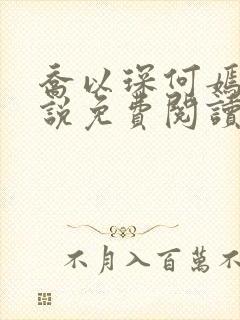 喬以琛何嫣
說免費閱讀
不月入百萬不